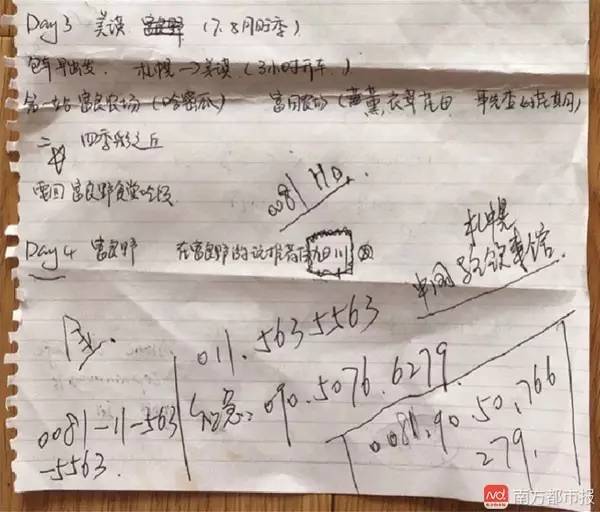 Day 3 美瑛 富良野 (7.8月时季)
包车早出发. 札幌→美瑛 (3小时开车.)
第一站富良农场(哈密瓜) 富田农场(薰衣草花田 事先查好花期)
二 四季彩之丘
返回富良野食堂吃饭
0081 HO.
Day 4 富良野 在富良野的话推荐住旭川
札幌
中国 领事馆.
011.563 5563
应急: 090.5076.6279.
0081-11-563
-5563.
0081.90.50.766
279.
南方都市报